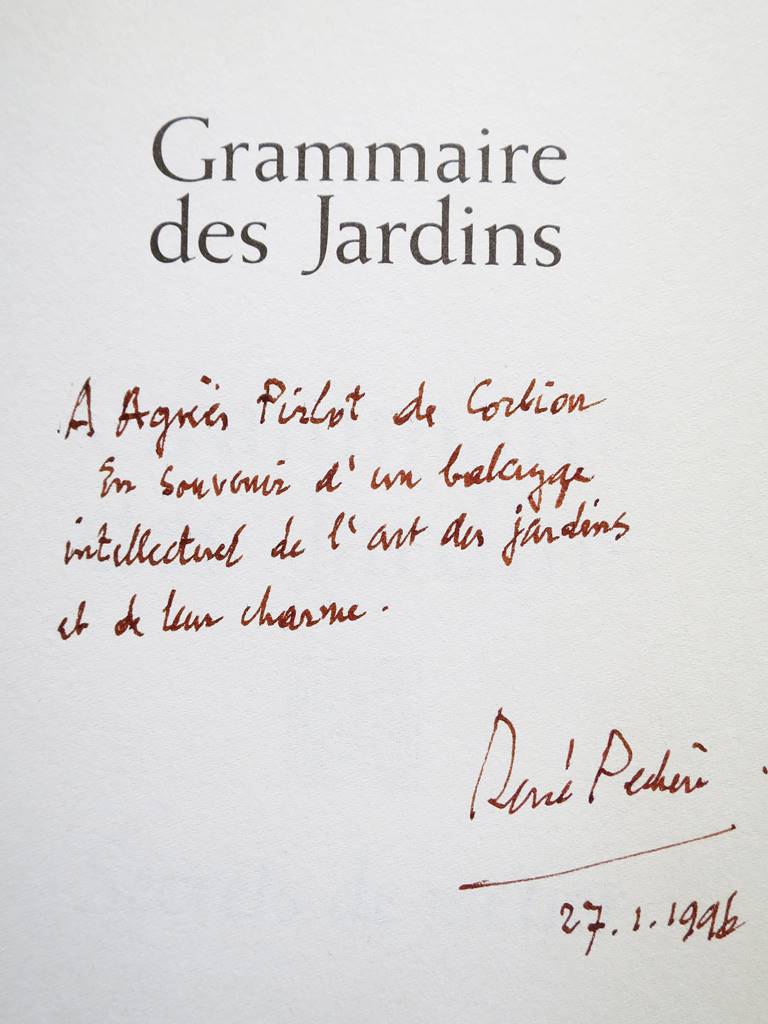 Grammaire
des Jardins
A Agnès Pirlot de Corbion
En souvenir d'un balayage
intellectuel de l'art des jardins
et de leur charme.
René Pechère
27.1.1996